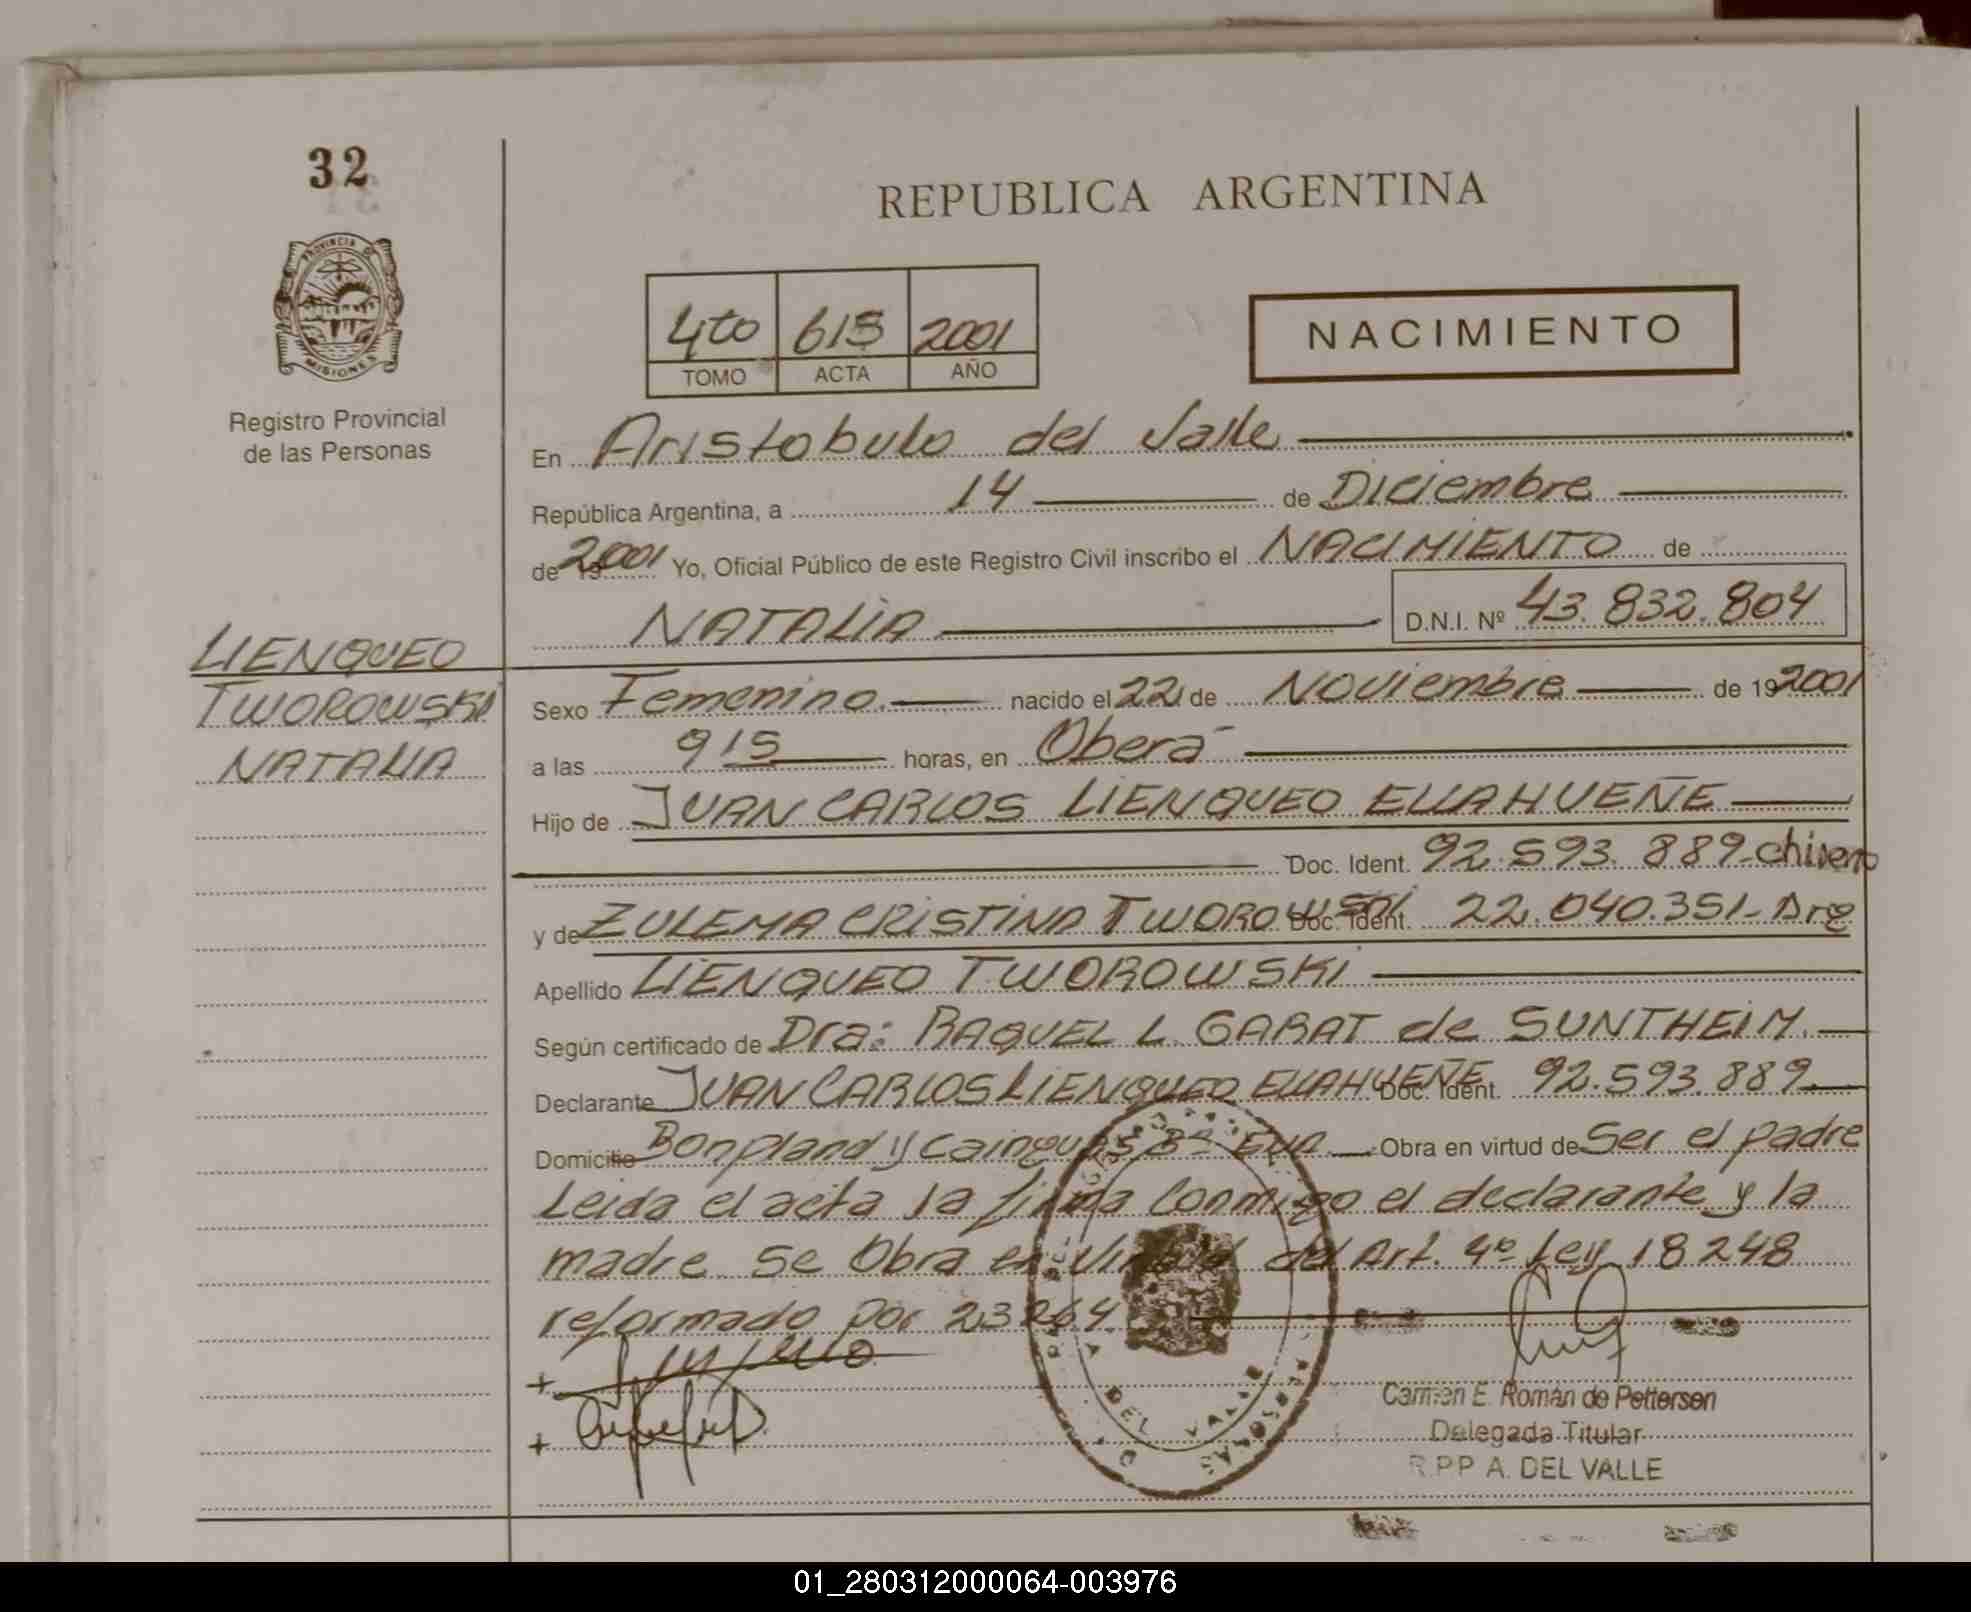 32
PROVINCIA DE
MISIONES
Registro Provincial
de las Personas
REPUBLICA ARGENTINA
4to 615 2001
TOMO ACTA AÑO
NACIMIENTO
En Aristobulo del Valle
República Argentina, a 14 de Diciembre
de 2001 Yo, Oficial Público de este Registro Civil inscribo el NACIMIENTO de
NATALIA D.N.I. Nº 43.832.804
LIENQUEO
TWOROWSKI
NATALIA
Sexo Femenino. nacido el 22 de Noviembre de 19 2001
a las 915 horas, en Oberá
Hijo de JUAN CARLOS LIENQUEO ELLAHUEÑE
Doc. Ident. 92.593.889-chileno
y de ZULEMA CRISTINA TWOROWSKI Doc. Ident. 22.040.351- Arg
Apellido LIENQUEO TWOROWSKI
Según certificado de Dra: RAQUEL L. GARAT de SUNTHEIM.
Declarante JUAN CARLOS LIENQUEO ELLAHUEÑE Doc. Ident. 92.593.889
Domicilio Bonpland y Cainguas Bº Eva Obra en virtud de Ser el padre
Leida el acta la firma conmigo el declarante y la
madre se obra en virtud del Art. 4º Ley 18248
reformado por 23264
+
+
DEL VALLE
PERSONAS
Carmen E. Román de Pettersen
Delegada Titular
R.P.P A. DEL VALLE
01_280312000064-003976